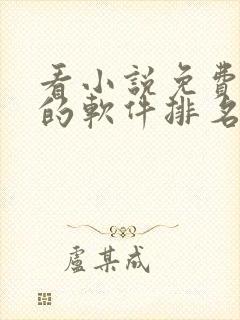 看小說免費
的軟件排名
盧某成